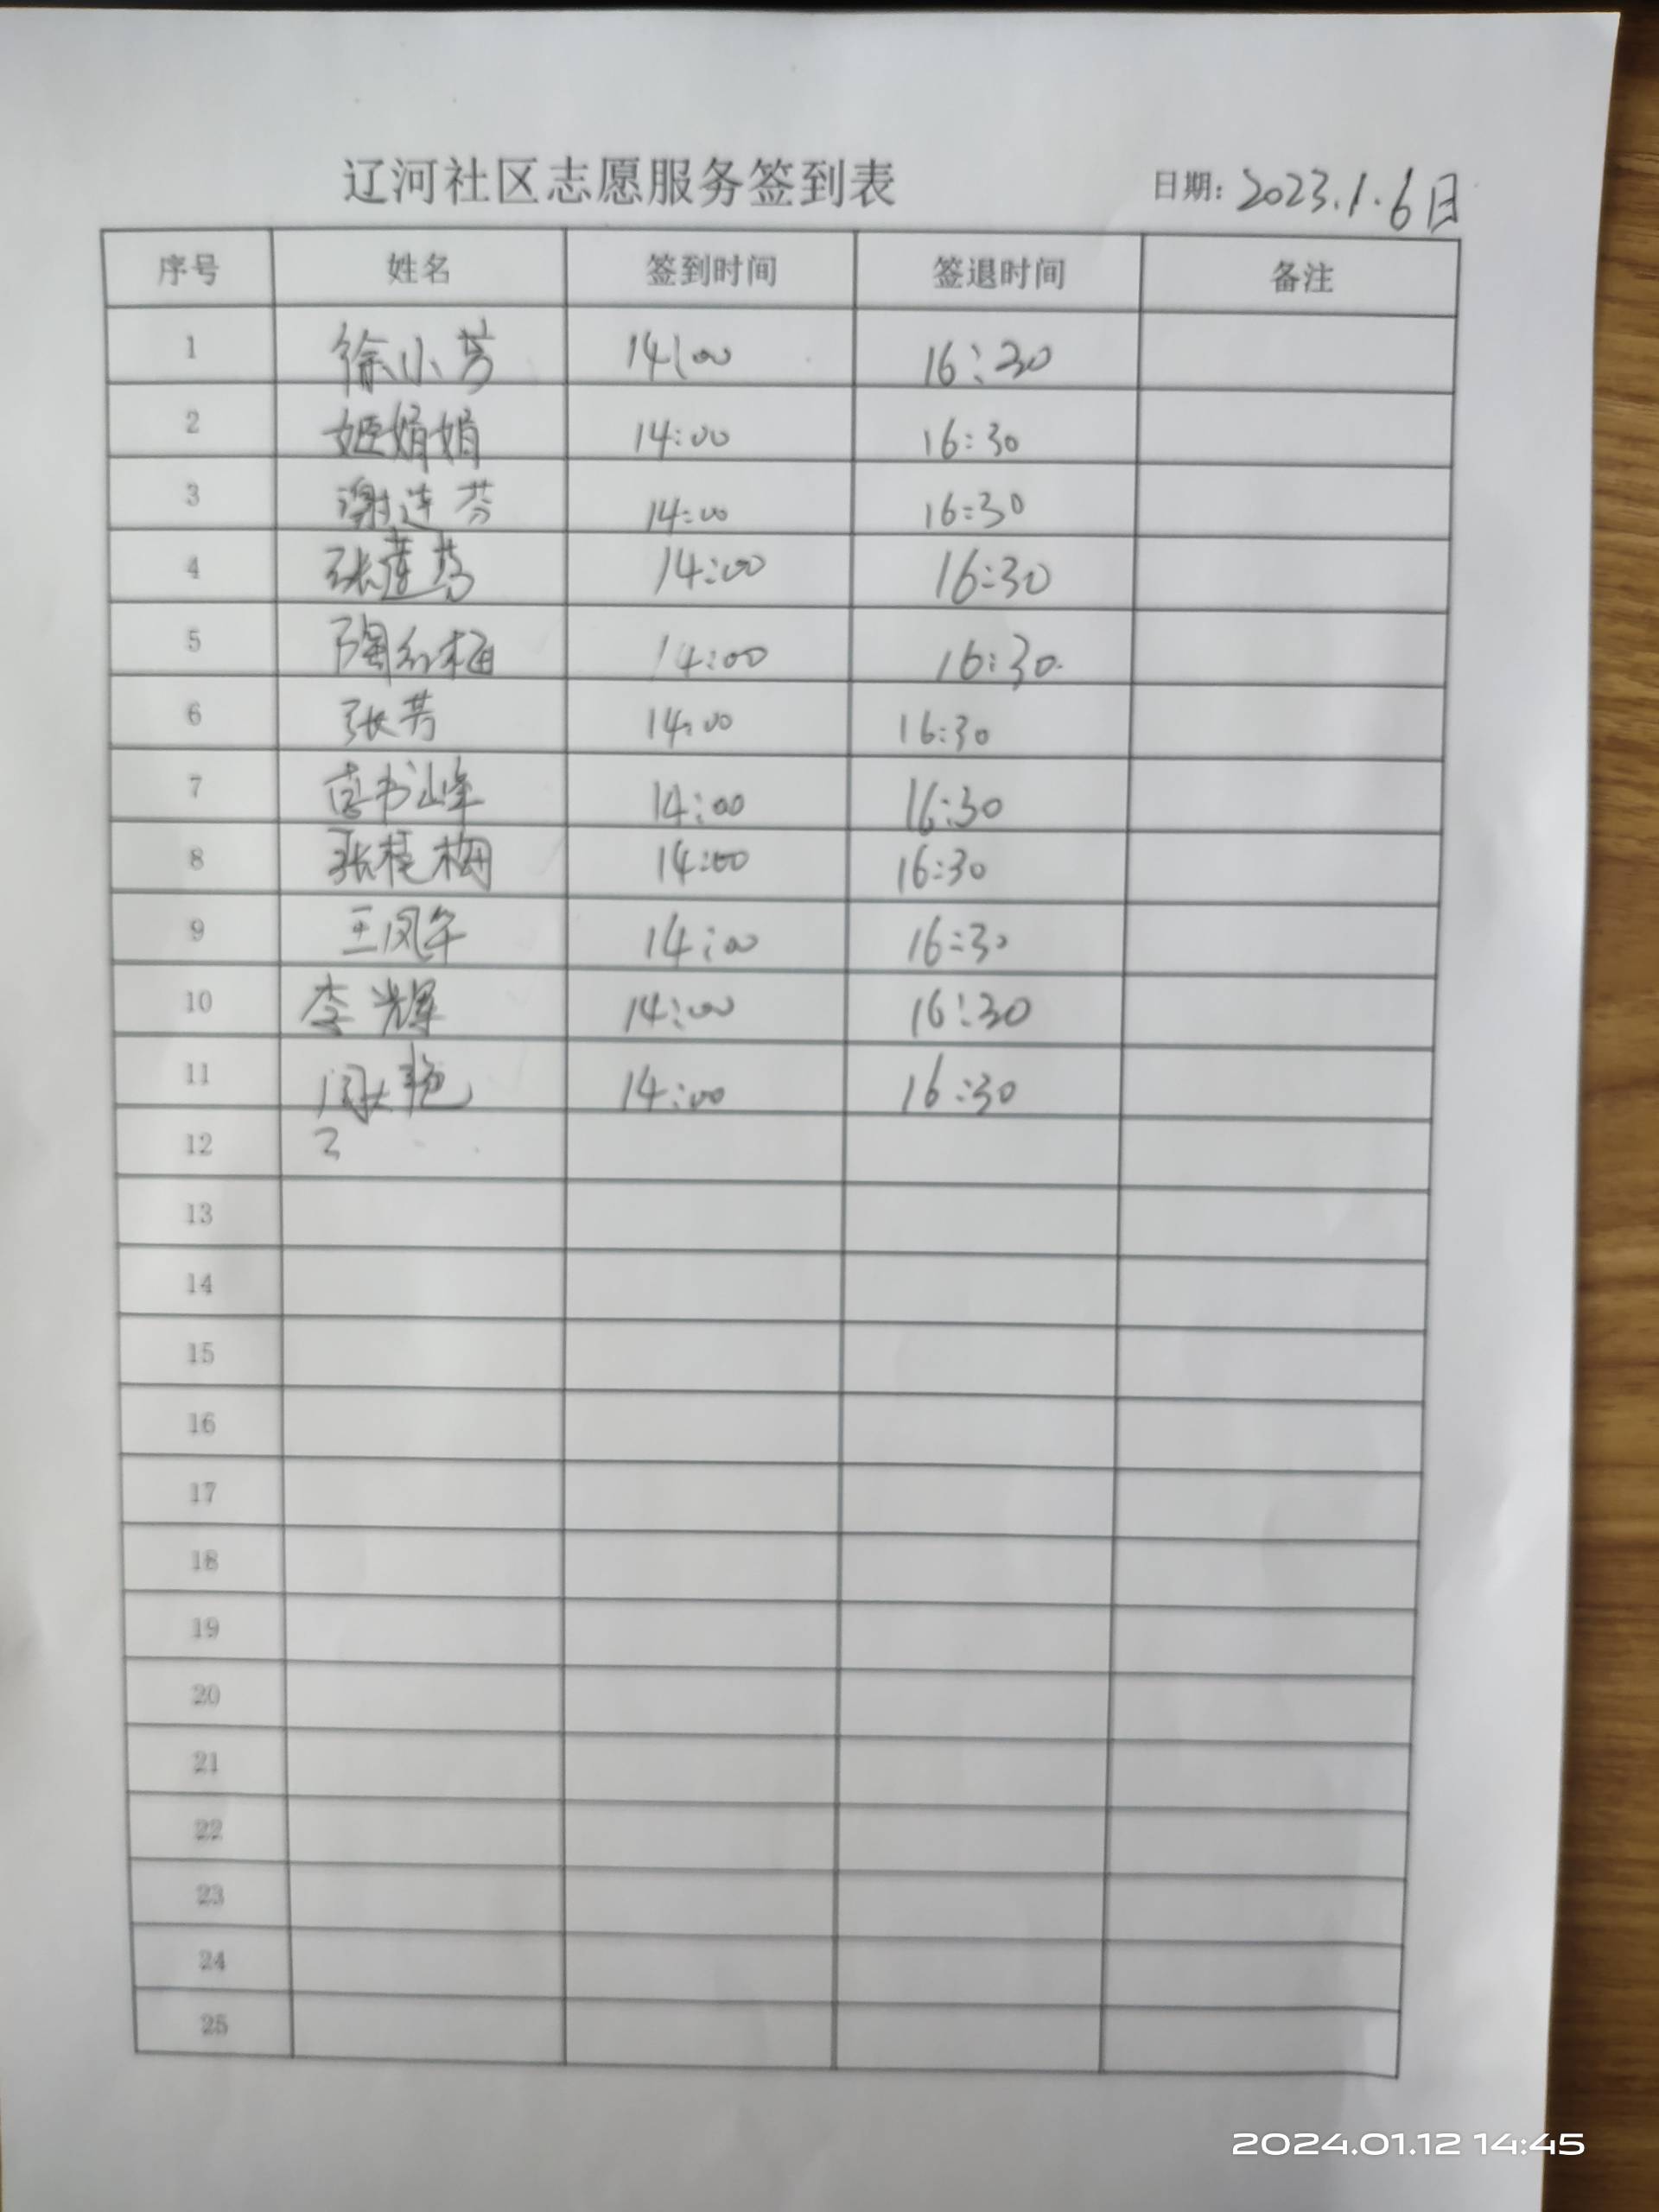 辽河社区志愿服务签到表 日期: 2023.1.6日
序号 姓名 签到时间 签退时间 备注
1 徐小芳 14:00 16:30
2 姬娟娟 14:00 16:30
3 谢连芬 14:00 16:30
4 张莲芳 14:00 16:30
5 陶红梅 14:00 16:30
6 张芳 14:00 16:30
7 书峰 14:00 16:30
8 张桂梅 14:00 16:30
9 王凤午 14:00 16:30
10 李辉 14:00 16:30
11 艳 14:00 16:30
12
13
14
15
16
17
18
19
20
21
22
23
24
25
2024.01.12 14:45